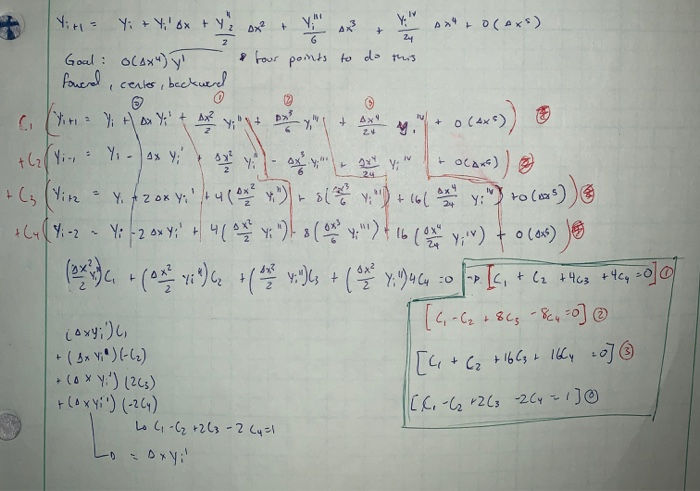 Yi+1 = Yi + Yi' Δx + Yi''/2 Δx² + Yi'''/6 Δx³ + Yi^IV/24 Δx⁴ + O(Δx⁵)
Goal: O(Δx⁴) y' * four points to do this
foward, center, backward
⓪ ① ② ③
C1 (Yi+1 = Yi + Δx Yi' + Δx²/2 Yi'' + Δx³/6 Yi''' + Δx⁴/24 Yi^IV + O(Δx⁵))
+C2 (Yi-1 = Yi - Δx Yi' + Δx²/2 Yi'' - Δx³/6 Yi''' + Δx⁴/24 Yi^IV + O(Δx⁵))
+C3 (Yi+2 = Yi + 2Δx Yi' + 4(Δx²/2 Yi'') + 8(Δx³/6 Yi''') + 16(Δx⁴/24 Yi^IV) + O(Δx⁵))
+C4 (Yi-2 = Yi - 2Δx Yi' + 4(Δx²/2 Yi'') - 8(Δx³/6 Yi''') + 16(Δx⁴/24 Yi^IV) + O(Δx⁵))
(Δx²/2 Yi'')C1 + (Δx²/2 Yi'')C2 + (Δx²/2 Yi'')C3 + (Δx²/2 Yi'')4C4 = 0 → [C1 + C2 + 4C3 + 4C4 = 0] ①
[C1 - C2 + 8C3 - 8C4 = 0] ②
[C1 + C2 + 16C3 + 16C4 = 0] ③
[C1 - C2 + 2C3 - 2C4 = 1] ⓪
(Δx Yi')C1
+ (Δx Yi')(-C2)
+ (Δx Yi')(2C3)
+ (Δx Yi')(-2C4)
↳ C1 - C2 + 2C3 - 2C4 = 1
= Δx Yi'